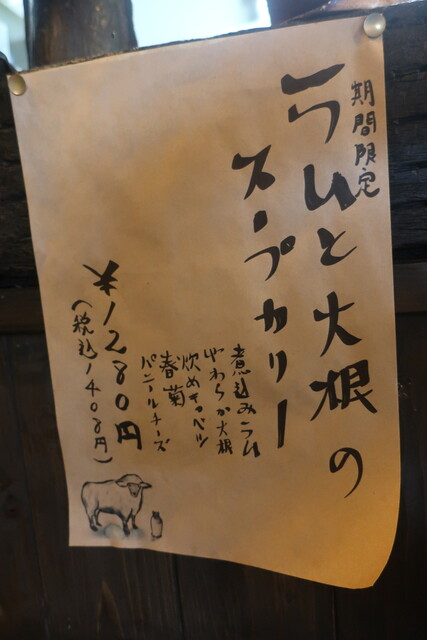 期間限定
ラムと大根の
スープカリー
煮込みラム
やわらか大根
炒めキャベツ
春菊
パニールチーズ
¥1280円
(税込1408円)